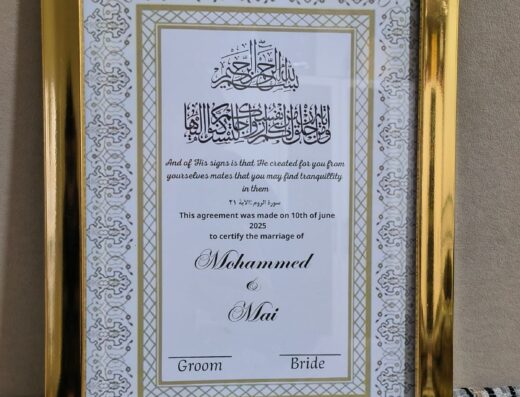 بسم الله الرحمن الرحيم
And of His signs is that He created for you from
yourselves mates that you may find tranquillity
in them
سورة الروم :الاية ٢١
This agreement was made on 10th of june
2025
to certify the marriage of
Mohammed
&
Mai
Groom Bride